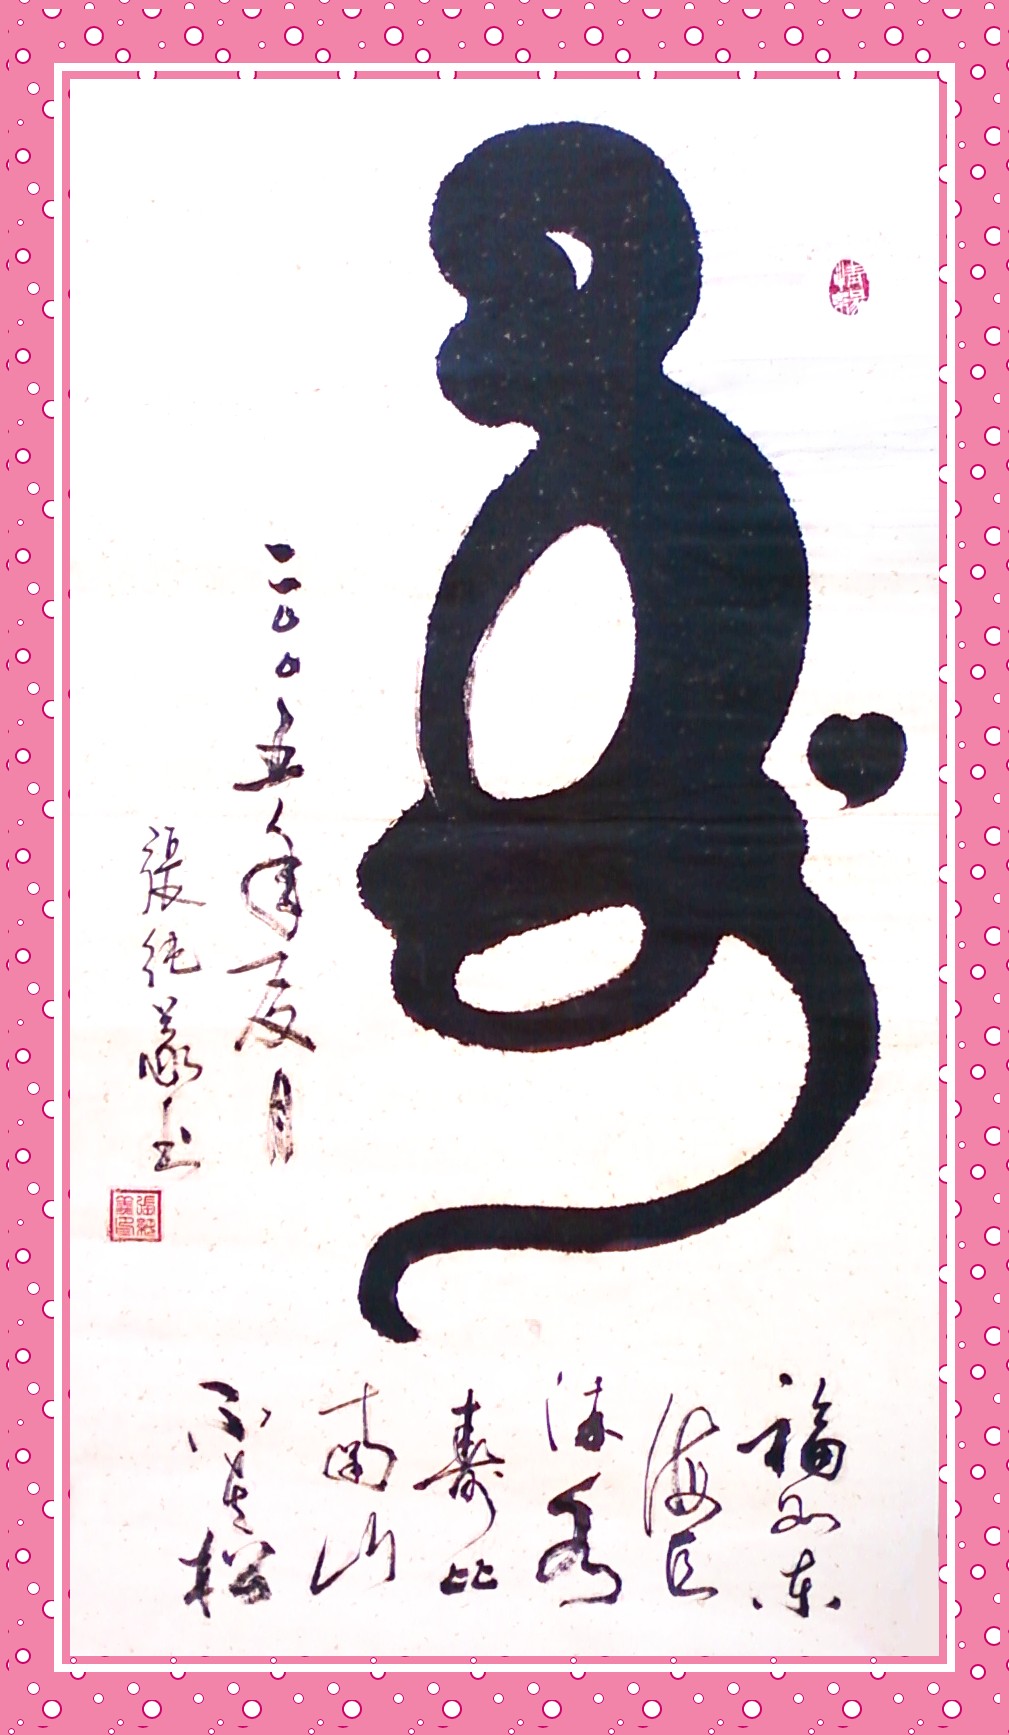 二〇〇五年夏月
張純義
福如东
海长
流水
寿比
南山
不老松